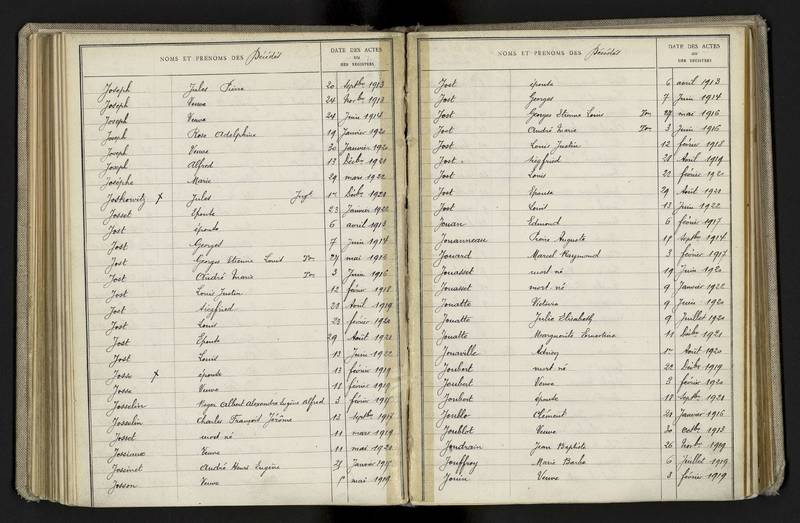 NOMS ET PRENOMS DES Décédés
DATE DES ACTES
OU
DES REGISTRES
Joseph Jules Pierre 20 Septbre 1913
Joseph Veuve 24 Novbre 1913
Joseph Veuve 24 Juin 1914
Joseph Rose Adolphine 19 Janvier 1920
Joseph Veuve 30 Janvier 1920
Joseph Alfred 13 Décbre 1921
Josèphe Marie 29 mars 1922
Joskowitz x Jules Décbre 1920
Josset Epoute 23 Janvier 1922
Jost épouse 6 avril 1913
Jost Georges 7 Juin 1914
Jost Georges Etienne Louis Ton 27 mai 1916
Jost André Marie Ton 3 Juin 1916
Jost Louis Justin 12 février 1918
Jost Siegfried 28 Avril 1919
Jost Louis 22 février 1920
Jost Epouse 29 Août 1920
Jost Louis 13 Juin 1922
Josse x épouse 13 février 1919
Josse Veuve 18 février 1919
Josselin Roger Albert Alexandre Eugène Alfred 3 février
Josselin Charles François Jérôme 13 Septbre
Josset mort né 11 mars 1919
Jossiaux Veuve 11 mai 1920
Jossinet André Henri Eugène 25 Janvier
Josson Veuve mai 1919
NOMS ET PRENOMS DES Décédés
DATE DES ACTES
OU
DES REGISTRES
Jost épouse 6 avril 1913
Jost Georges 7 Juin 1914
Jost Georges Etienne Louis Ton 27 mai 1916
Jost André Marie Ton 3 Juin 1916
Jost Louis Justin 12 février 1918
Jost Siegfried 28 Avril 1919
Jost Louis 22 février 1920
Jost Epouse 29 Août 1920
Jost Louis 13 Juin 1922
Jouan Edmond 6 février 1917
Jouanneau Pierre Auguste 11 Septbre 1914
Jouard Marcel Raymond 3 février 1917
Jouasset mort né 19 Juin 1920
Jouasset mort né 9 Janvier 1922
Jouatte Victoria 9 Juin 1920
Jouatte Julie Elisabeth 9 Juillet 1920
Jouatte Marguerite Ernestine 11 Décbre 1921
Jouaville Août 1920
Joubert mort né 22 Décbre 1919
Joubert Veuve 3 février 1920
Joubert épouse 18 Septbre 1921
Joublo Clément 21 Janvier 1916
Joublot Veuve 30 octbre 1913
Joudrain Jean Baptiste 26 Novbre 1919
Jouffroy Marie Barbe 6 Juillet 1919
Jouin Veuve 3 février 1919